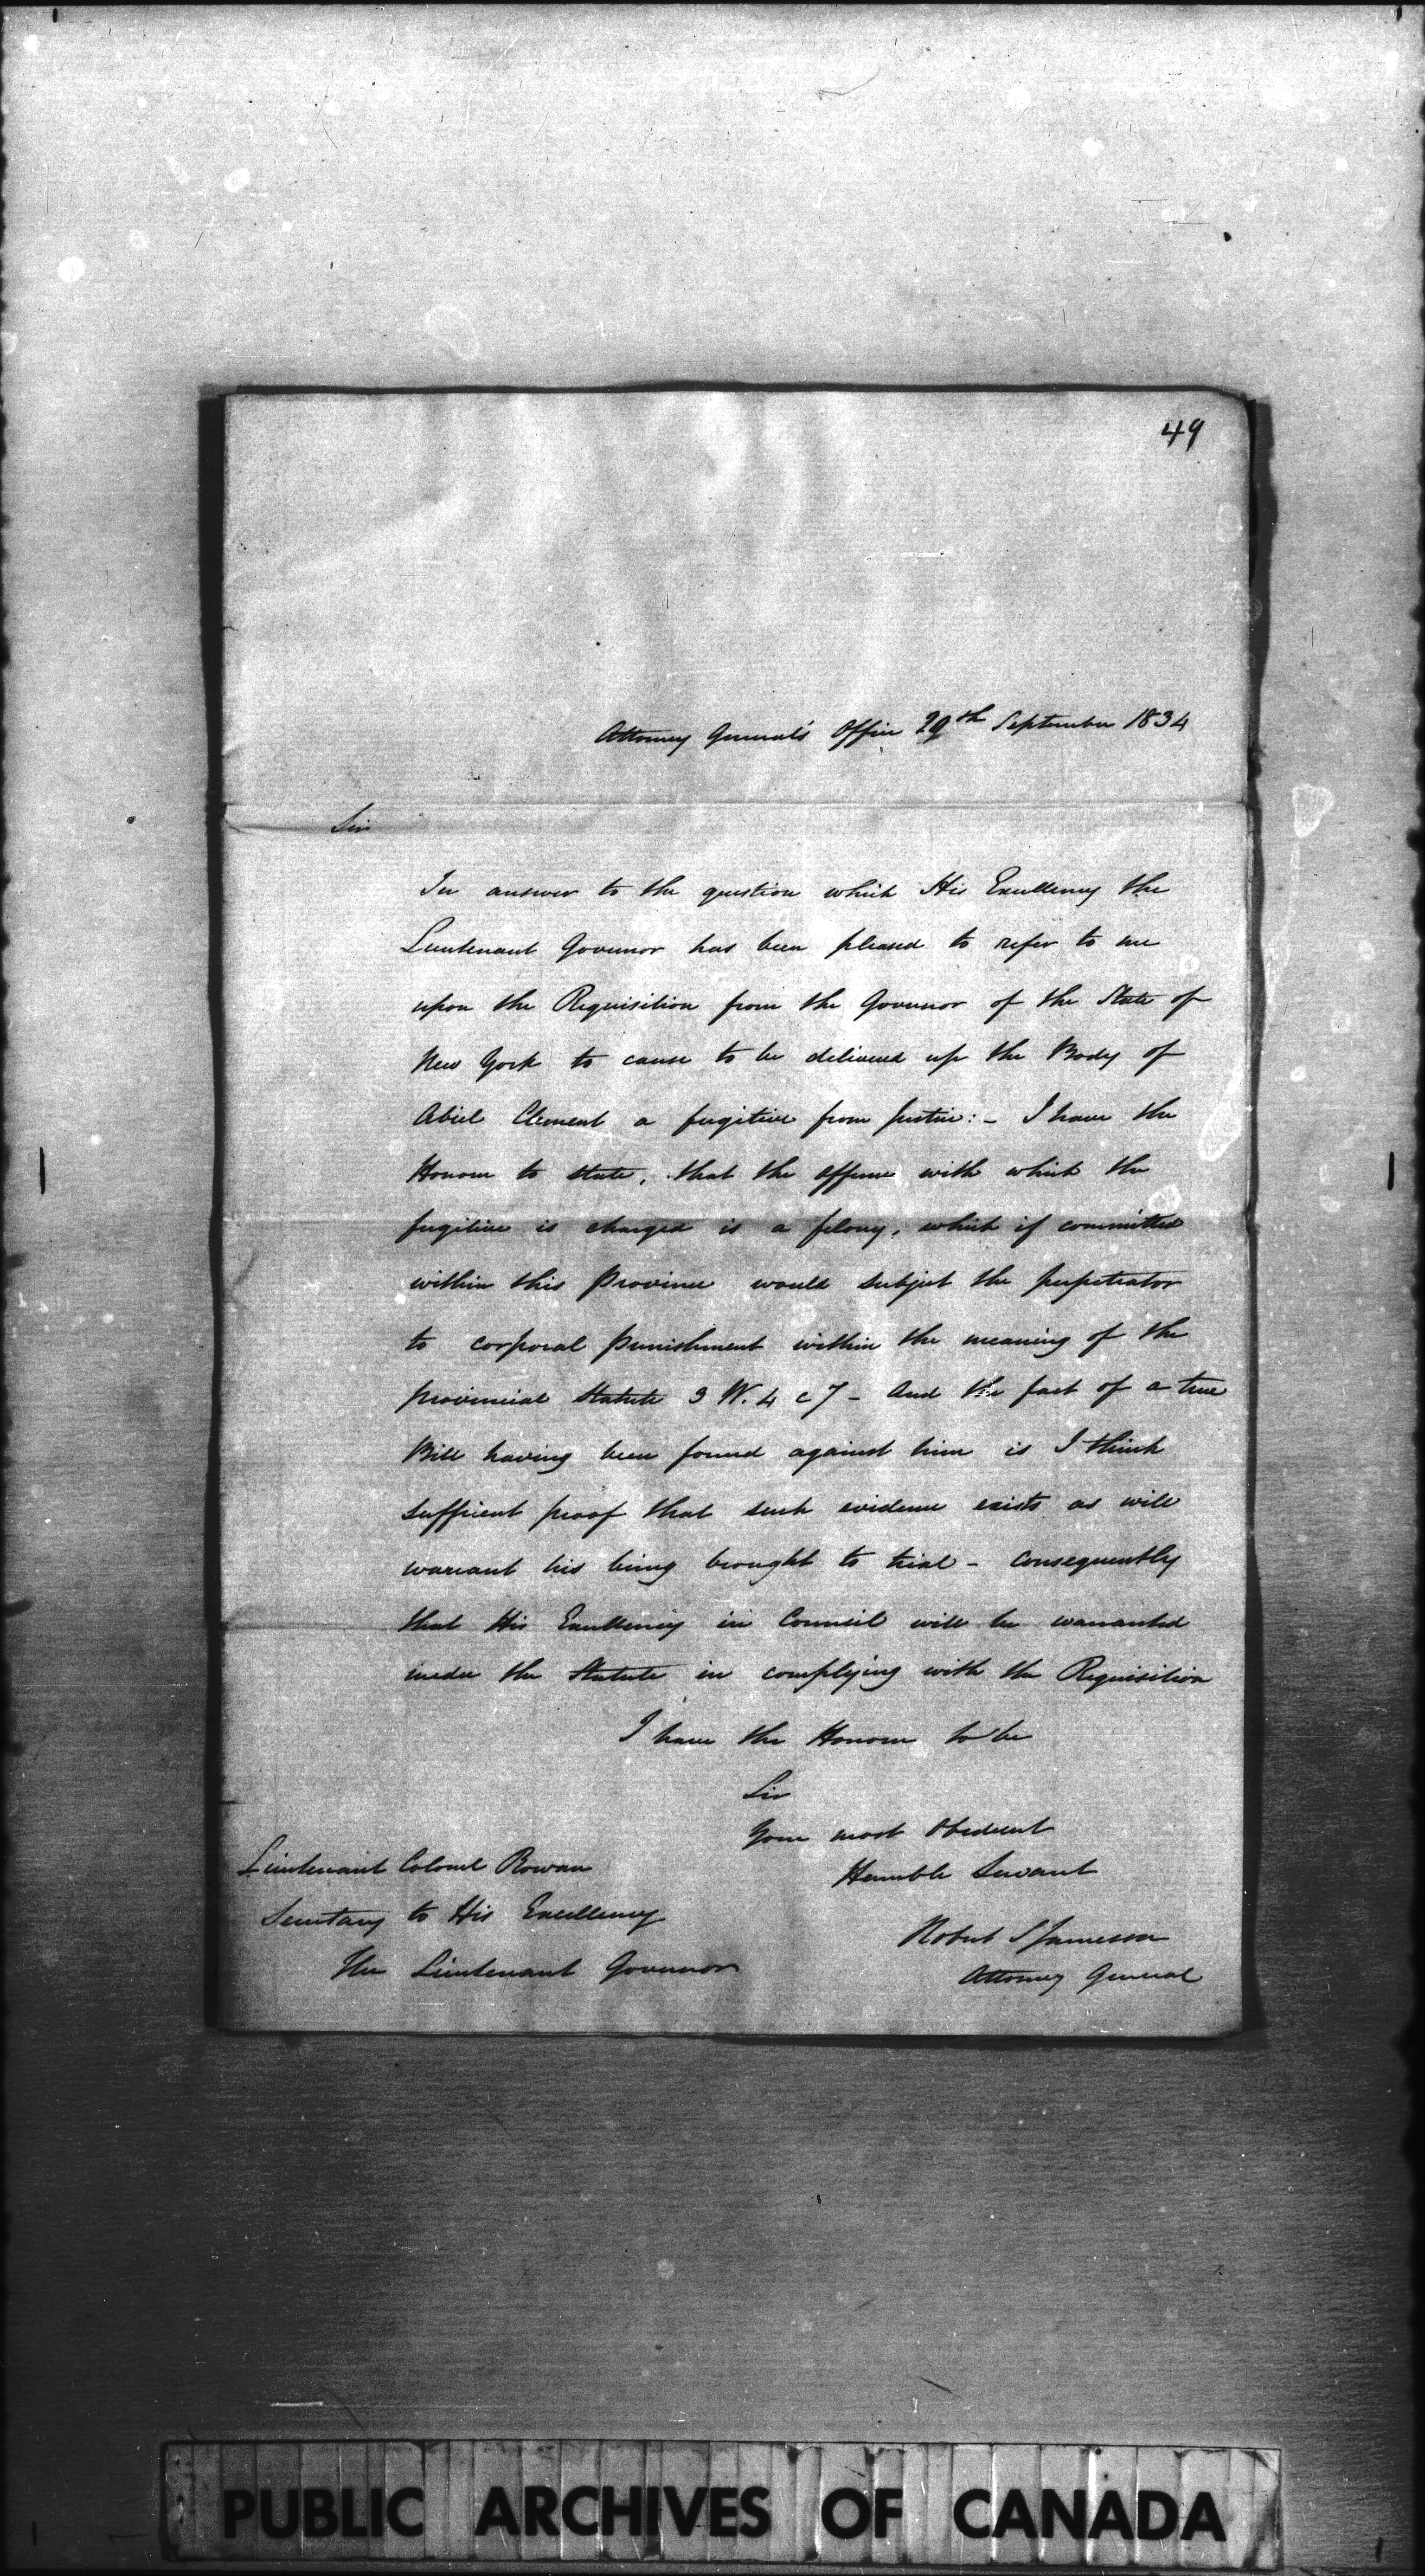 49
Attorney General's Office 29th September 1834
Sir
In answer to the question which His Excellency the
Lieutenant Governor has been pleased to refer to me
upon the Requisition from the Governor of the State of
New York to cause to be delivered up the Body of
Abiel Clement a fugitive from Justice:- I have the
Honour to state, that the offence with which the
fugitive is charged is a felony, which if committed
within this Province would subject the perpetrator
to corporal punishment within the meaning of the
provincial Statute 3 W. 4 c 7 - And the fact of a true
Bill having been found against him is I think
sufficient proof that such evidence exists as will
warrant his being brought to trial - Consequently
that His Excellency in Council will be warranted
under the Statute in complying with the Requisition
I have the Honour to be
Sir
Your most Obedient
Humble Servant
Robert S Jameson
Attorney General
Lieutenant Colonel Rowan
Secretary to His Excellency
The Lieutenant Governor
PUBLIC ARCHIVES OF CANADA